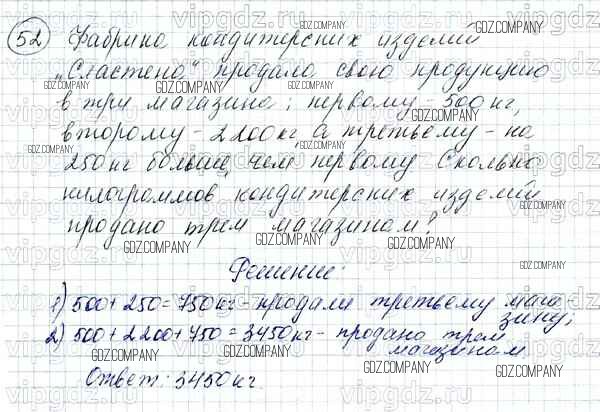 52 Фабрика кондитерских изделий
„Сластена“ продала свою продукцию
в три магазина; первому - 500 кг,
второму - 2200 кг, а третьему - на
250 кг больше, чем первому. Сколько
килограммов кондитерских изделий
продано трем магазинам?
Решение:
1) 500 + 250 = 750 кг - продали третьему мага-
зину;
2) 500 + 2200 + 750 = 3450 кг - продано трем
магазинам
Ответ: 3450 кг.
vipgdz.com
GDZ.COMPANY